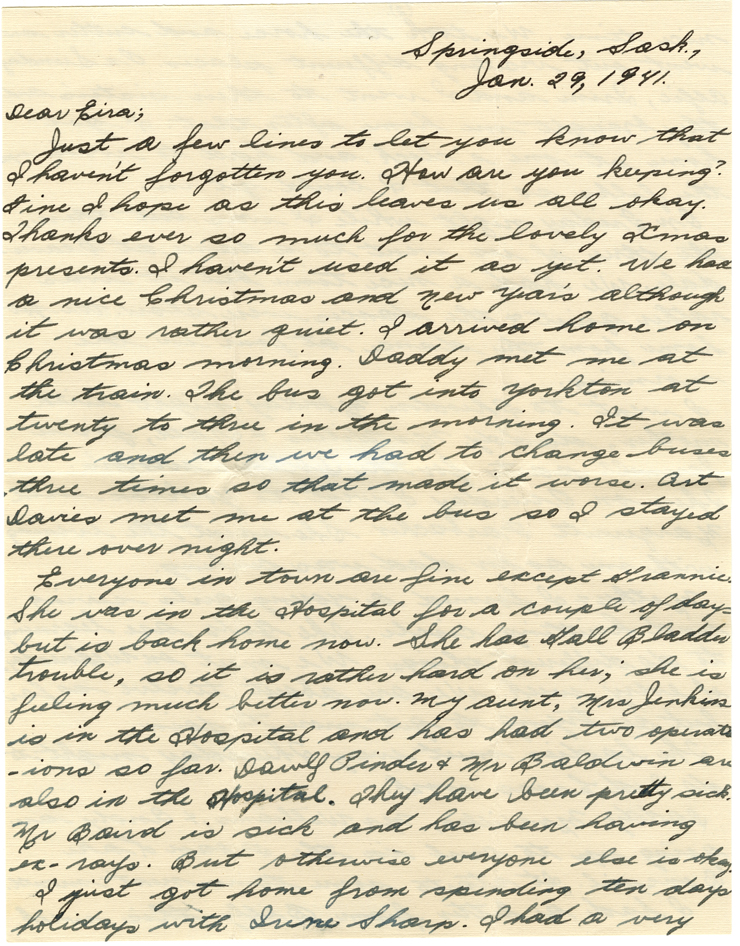 Springside, Sask.,
Jan. 29, 1941.
Dear Eira;
Just a few lines to let you know that
I haven't forgotten you. How are you keeping?
Fine I hope as this leaves us all okay.
Thanks ever so much for the lovely Xmas
presents. I haven't used it as yet. We had
a nice Christmas and New Year's although
it was rather quiet. I arrived home on
Christmas morning. Daddy met me at
the train. The bus got into Yorkton at
twenty to three in the morning. It was
late and then we had to change buses
three times so that made it worse. Art
Davies met me at the bus so I stayed
there over night.
Everyone in town are fine except Grannie.
She was in the Hospital for a couple of day-
but is back home now. She has Gall Bladder
trouble, so it is rather hard on her; she is
feeling much better now. My aunt, Mrs Jenkins
is in the Hospital and has had two operat
-ions so far. Pinder & Mr Baldwin are
also in the Hospital. They have been pretty sick.
Mr Baird is sick and has been having
ex-rays. But otherwise everyone else is okay.
I just got home from spending ten days
holidays with Irene Sharp. I had a very